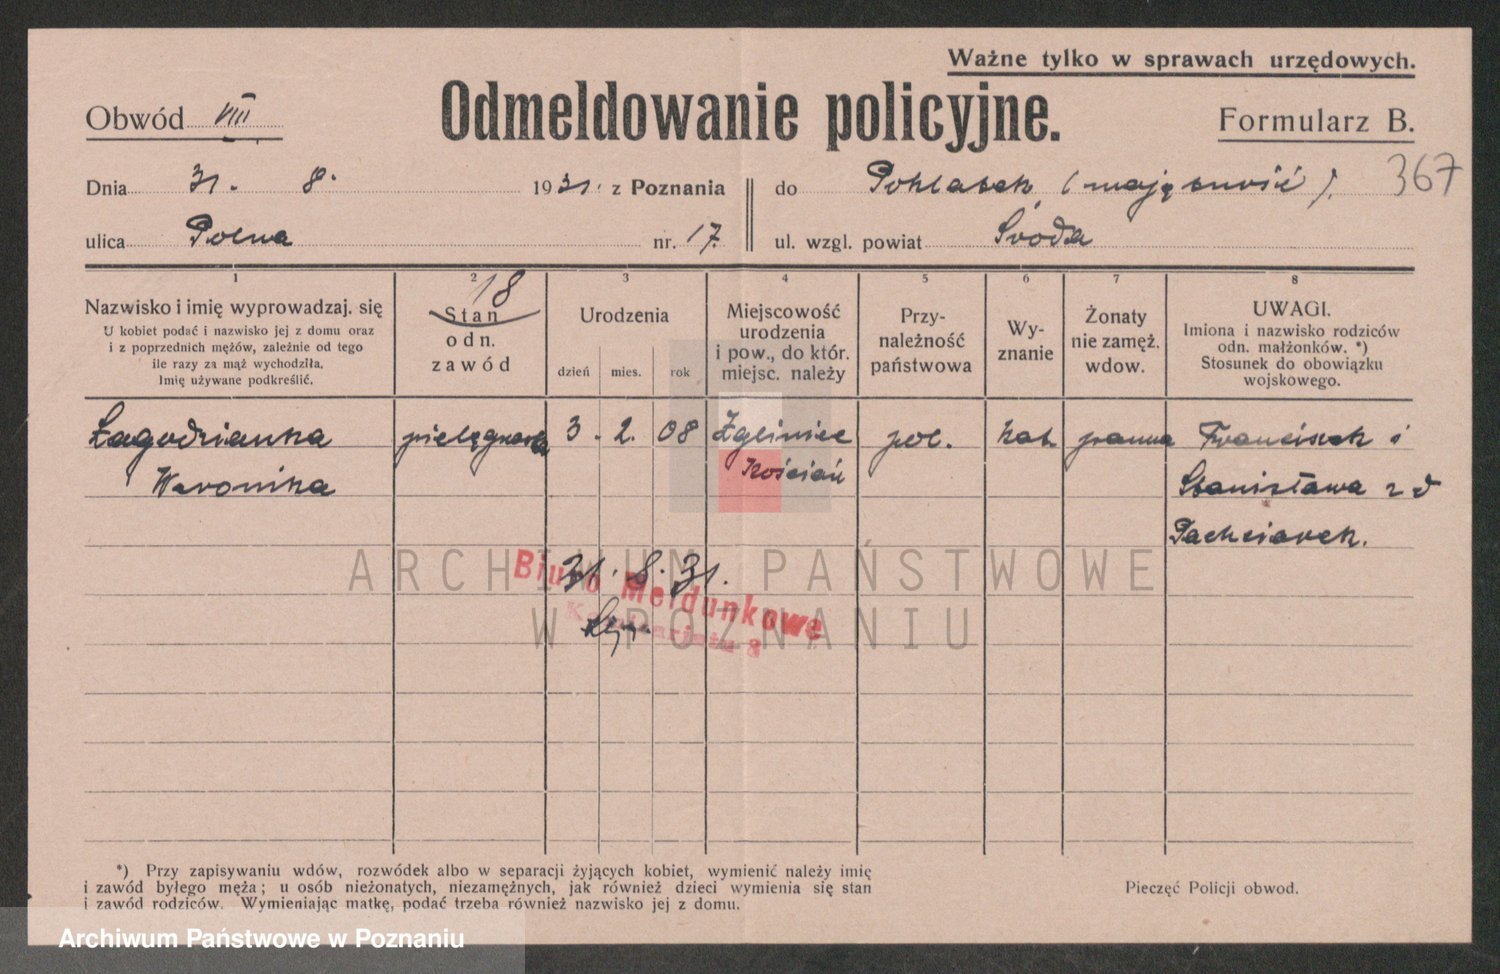 Ważne tylko w sprawach urzędowych.
Obwód VIII
Odmeldowanie policyjne.
Formularz B.
367
Dnia 31. 8. 1931. z Poznania
do (majętność).
ulica Polna nr. 17.
ul. wzgl. powiat Środa
1 2 3 4 5 6 7 8
18
Nazwisko i imię wyprowadzaj. się
U kobiet podać i nazwisko jej z domu oraz
i z poprzednich mężów, zależnie od tego
ile razy za mąż wychodziła.
Imię używane podkreślić.
Stan
odn.
zawód
Urodzenia
dzień mies. rok
Miejscowość
urodzenia
i pow., do któr.
miejsc. należy
Przy-
należność
państwowa
Wy-
znanie
Żonaty
nie zamęż.
wdow.
UWAGI.
Imiona i nazwisko rodziców
odn. małżonków. *)
Stosunek do obowiązku
wojskowego.
Łagodzianka pielęgniarka 3. 2. 08 Zgliniec pol. kat. panna Franciszek i
Weronika Kościan Stanisława z d
Pachciarek.
31. 8. 31.
Biuro Meldunkowe
Komisarjatu 8
ARCHIWUM PAŃSTWOWE
W POZNANIU
*) Przy zapisywaniu wdów, rozwódek albo w separacji żyjących kobiet, wymienić należy imię
i zawód byłego męża; u osób nieżonatych, niezamężnych, jak również dzieci wymienia się stan
i zawód rodziców. Wymieniając matkę, podać trzeba również nazwisko jej z domu.
Pieczęć Policji obwod.
Archiwum Państwowe w Poznaniu